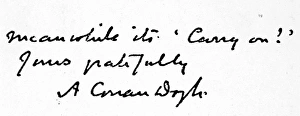 meanwhile its 'Carry on!'
Yours gratefully
A Conan Doyle.